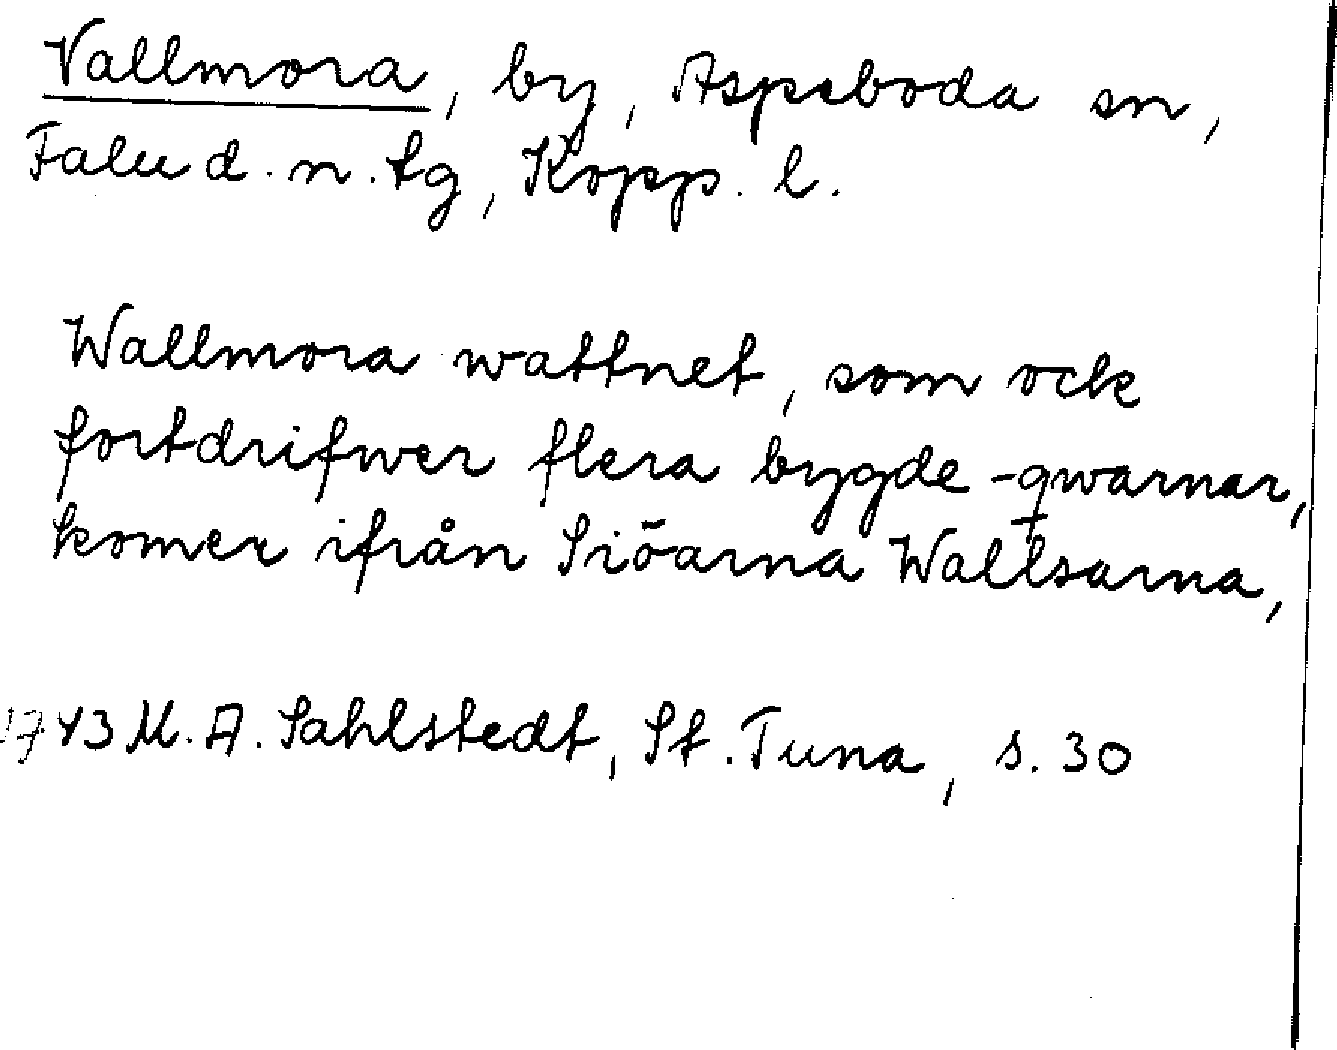 Vallmora, by, Aspeboda sn,
Falu d. n. tg, Kopp. l.
Wallmora wattnet, som ock
fortdrifwer flera bygde-qwarnar,
komer ifrån Siöarna Wallsarna,
1743 M. A. Sahlstedt, St. Tuna, s. 30